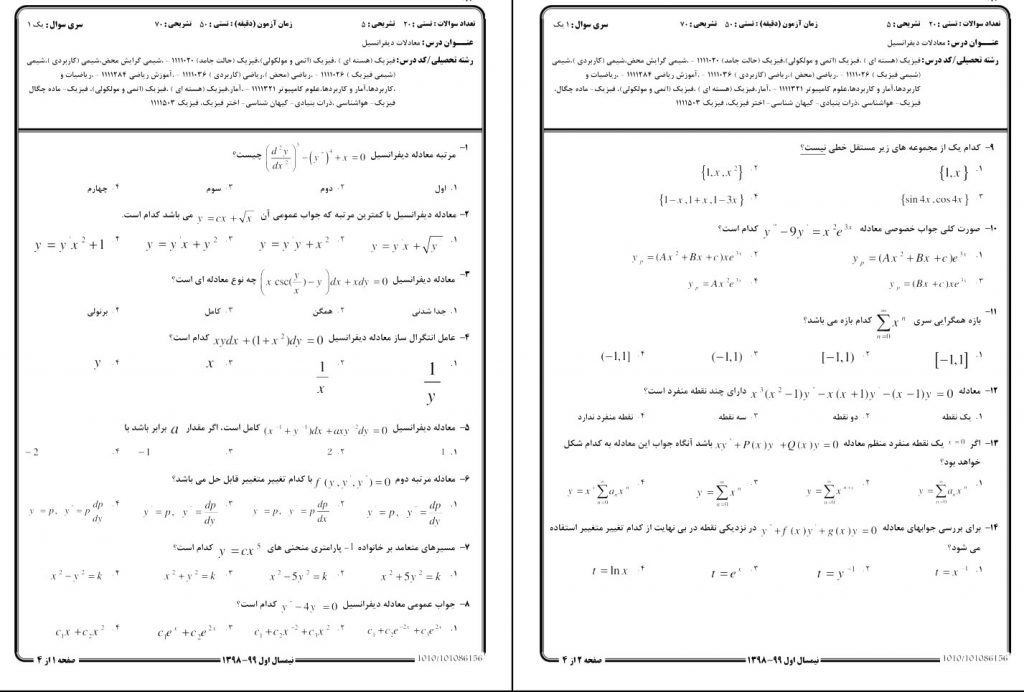 تعداد سوالات : تستی : ۲۰ تشریحی : ۵ زمان آزمون (دقیقه) : تستی : ۵۰ تشریحی : ۷۰ سری سوال : ۱ یک
عنـــوان درس : معادلات دیفرانسیل
رشته تحصیلی/کد درس : فیزیک (هسته ای ) ،فیزیک (اتمی و مولکولی)،فیزیک (حالت جامد) ۱۱۱۱۰۲۰ - ،شیمی گرایش محض،شیمی (کاربردی )،شیمی
(شیمی فیزیک ) ۱۱۱۱۰۲۶ - ،ریاضی (محض )،ریاضی (کاربردی ) ۱۱۱۱۰۳۶ - ،آموزش ریاضی ۱۱۱۱۲۸۴ - ،ریاضیات و
کاربردها،آمار و کاربردها،علوم کامپیوتر ۱۱۱۱۳۲۱ - ،آمار،فیزیک (هسته ای ) ،فیزیک (اتمی و مولکولی)، فیزیک- ماده چگال
فیزیک- هواشناسی ،ذرات بنیادی - کیهان شناسی - اختر فیزیک، فیزیک ۱۱۱۱۵۰۳
۱- مرتبه معادله دیفرانسیل (d²y/dx²)³ -(y˝)⁴ + x = 0 چیست؟
۱. اول ۲. دوم ۳. سوم ۴. چهارم
۲- معادله دیفرانسیل با کمترین مرتبه که جواب عمومی آن y = cx + √x می باشد کدام است.
۱. y = y′x + √y ۲. y = y′y + x² ۳. y = y′x + y² ۴. y = y′x² + 1
۳- معادله دیفرانسیل (x csc(y/x) − y)dx + xdy = 0 چه نوع معادله ای است؟
۱. جدا شدنی ۲. همگن ۳. کامل ۴. برنولی
۴- عامل انتگرال ساز معادله دیفرانسیل xydx + (1 + x²)dy = 0 کدام است؟
۱. 1/y ۲. 1/x ۳. x ۴. y
۵- معادله دیفرانسیل (x⁻¹ + y⁻¹)dx + axy⁻²dy = 0 کامل است، اگر مقدار a برابر باشد با
۱. 1 ۲. 2 ۳. −1 ۴. −2
۶- معادله مرتبه دوم f(y, y′, y˝) = 0 با کدام تغییر متغییر قابل حل می باشد؟
۱. y = p, y˝ = dp/dy ۲. y = p, y˝ = p dp/dx ۳. y = p, y˝ = dp/dy ۴. y = p, y˝ = p dp/dy
۷- مسیرهای متعامد بر خانواده 1- پارامتری منحنی های y = cx⁵ کدام است؟
۱. x² + 5y² = k ۲. x² − 5y² = k ۳. x² + y² = k ۴. x² − y² = k
۸- جواب عمومی معادله دیفرانسیل y˝ − 4y′ = 0 کدام است؟
۱. c₁ + c₂e⁻²ˣ + c₃e²ˣ ۲. c₁ + c₂x⁻² + c₃x² ۳. c₁eˣ + c₂e²ˣ ۴. c₁x + c₂x²
1010/101086156 نیمسال اول ۹۹-۱۳۹۸ صفحه ۱ از ۴
تعداد سوالات : تستی : ۲۰ تشریحی : ۵ زمان آزمون (دقیقه) : تستی : ۵۰ تشریحی : ۷۰ سری سوال : ۱ یک
عنـــوان درس : معادلات دیفرانسیل
رشته تحصیلی/کد درس : فیزیک (هسته ای ) ،فیزیک (اتمی و مولکولی)،فیزیک (حالت جامد) ۱۱۱۱۰۲۰ - ،شیمی گرایش محض،شیمی (کاربردی )،شیمی
(شیمی فیزیک ) ۱۱۱۱۰۲۶ - ،ریاضی (محض )،ریاضی (کاربردی ) ۱۱۱۱۰۳۶ - ،آموزش ریاضی ۱۱۱۱۲۸۴ - ،ریاضیات و
کاربردها،آمار و کاربردها،علوم کامپیوتر ۱۱۱۱۳۲۱ - ،آمار،فیزیک (هسته ای ) ،فیزیک (اتمی و مولکولی)، فیزیک- ماده چگال،
فیزیک- هواشناسی ،ذرات بنیادی - کیهان شناسی - اختر فیزیک، فیزیک ۱۱۱۱۵۰۳
۹- کدام یک از مجموعه های زیر مستقل خطی نیست؟
۱. {1, x} ۲. {1, x, x²}
۳. {sin 4x, cos 4x} ۴. {1 − x, 1 + x, 1 − 3x}
۱۰- صورت کلی جواب خصوصی معادله y˝ − 9y′ = x²e³ˣ کدام است؟
۱. yₚ = (Ax² + Bx + c)e³ˣ ۲. yₚ = (Ax² + Bx + c)xe³ˣ
۳. yₚ = (Bx + c)xe³ˣ ۴. yₚ = Ax²e³ˣ
۱۱- بازه همگرایی سری ∑ₙ₌₀^∞ xⁿ کدام بازه می باشد؟
۱. [−1,1] ۲. [−1,1) ۳. (−1,1) ۴. (−1,1]
۱۲- معادله x³(x² − 1)y˝ − x(x + 1)y′ − (x − 1)y = 0 دارای چند نقطه منفرد است؟
۱. یک نقطه ۲. دو نقطه ۳. سه نقطه ۴. نقطه منفرد ندارد
۱۳- اگر x = 0 یک نقطه منفرد منظم معادله xy˝ + P(x)y′ + Q(x)y = 0 باشد آنگاه جواب این معادله به کدام شکل
خواهد بود؟
۱. y = ∑ₙ₌₀^∞ aₙxⁿ ۲. y = ∑ₙ₌₀^∞ xⁿ⁺ʳ ۳. y = ∑ₙ₌₀^∞ xⁿ ۴. y = xʳ∑ₙ₌₀^∞ aₙxⁿ
۱۴- برای بررسی جوابهای معادله y˝ + f(x)y′ + g(x)y = 0 در نزدیکی نقطه در بی نهایت از کدام تغییر متغییر استفاده
می شود؟
۱. t = x⁻¹ ۲. t = y⁻¹ ۳. t = eˣ ۴. t = ln x
1010/101086156 نیمسال اول ۹۹-۱۳۹۸ صفحه ۲ از ۴